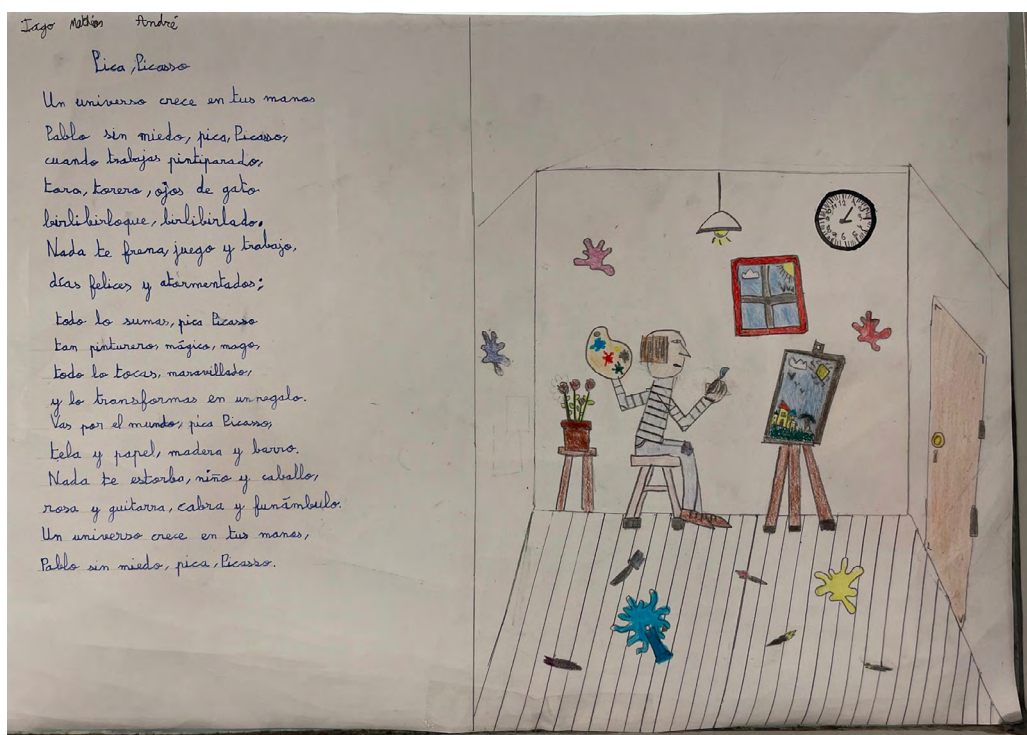 Iago Mathías André
Pica, Picasso
Un universo crece en tus manos
Pablo sin miedo, pica, Picasso,
cuando trabajas pintiparado,
toro, torero, ojos de gato
birlibirloque, birlibirlado.
Nada te frena, juego y trabajo,
días felices y atormentados;
todo lo sumas, pica Picasso
tan pinturero, mágico, mago,
todo lo tocas, maravillado,
y lo transformas en un regalo.
Vas por el mundo, pica Picasso,
tela y papel, madera y barro.
Nada te estorba, niño y caballo,
rosa y guitarra, cabra y funámbulo.
Un universo crece en tus manos,
Pablo sin miedo, pica, Picasso.